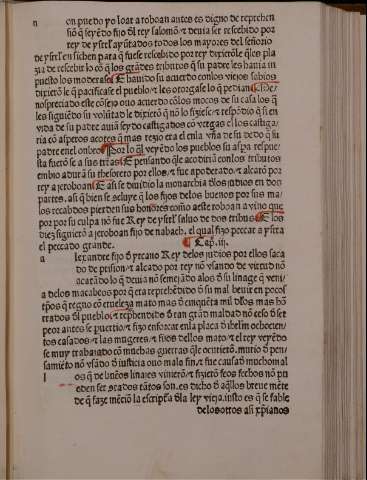 n on puedo yo loar a roboan antes es digno de reprehen
siō q̄ seyēdo fijo dl̄ rey salomō ⁊ devia ser rescebido por
rey de ysrl̄ ayūtados todos los mayores del señorio
de ysrl̄ en sichen para q̄ fuese rescebido por rey dixerōle q̄ les pla
zia de rescebir lo cō q̄ los grādes tributos q̄ su padre les havia in
puesto los moderase ⸿ E havido su acuerdo con los viejos sabios
dixerō le q̄ pacificase el pueblo ⁊ les otorgase lo q̄ pedian ⸿ Me/
nospreciado este cōsejo ovo acuerdo cō los mocos de su casa los q̄
les siguiēdo su volūtad le dixerō q̄ nō lo fiziese ⁊ respōdio q̄ si en
vida de su padre aviā seydo castigados cō vergas el los castiga/
ria cō asperos acotes q̄ mas rezio era el en la vña de su dedo q̄ su
padre en el onbro ⸿ Por lo q̄l veyēdo los pueblos su aspa respue/
sta fuerō se a sus trras ⸿ E pensando q̄ le acodiriā con los tributos
embio adurā su thesorero por ellos ⁊ fue apoderado ⁊ alcarō por
rey a jeroboan ⸿ E asi se dividio la monarchia dl̄os judios en dos
partes. asi q̄ bien se scluye q̄ los fijos delos buenos por sus ma/
los recabdos pierden sus honores como aeste roboan a vino que
por por su culpa nō fue Rey de ysrl̄ saluo de dos tribus ⸿ E los
diez siguierō a jeroboan fijo de nabach. el qual fizo peccar a ysra
el peccado grande. ⸿ Cap. iii.
a lexandre fijo d̄ yrcano Rey delos judios por ellos saca
do de prision ⁊ alcado por rey nō vsando de virtud nō
acatādo lo q̄ devia nō semejādo alos d̄ su linage q̄ veni/
a delos macabeos por q̄ era reprehēdido d̄ su mal bevir en poco
tpō s q̄ regno cō crueleza mato mas d̄ cinquēta mil dl̄os mas hō
trados dl̄ pueblo ⁊ reprehendido d̄ tan grād maldad nō ceso d̄ ser
peor antes se puertio ⁊ fizo enforcar en la placa d̄ ihrl̄m ochocien/
tos casados ⁊ a las mugeres ⁊ fijos dellos mato ⁊ el rey veyēdo
se muy trabajado cō muchas guerras q̄ le ocurierō. murio d̄ pen/
samiēto nō vsādo d̄ justicia ovo mala fin ⁊ fue causa d̄ mucho mal
l os q̄ de buēos linares vinierō ⁊ fizierō feos fechos nō pu
eden ser srados tātos son. es dicho d̄ aq̄llos breue mēte
de q̄ faze mēciō la escriptra dl̄a ley vieja. justo es q̄ se fable
delos otros asi xp̄ianos